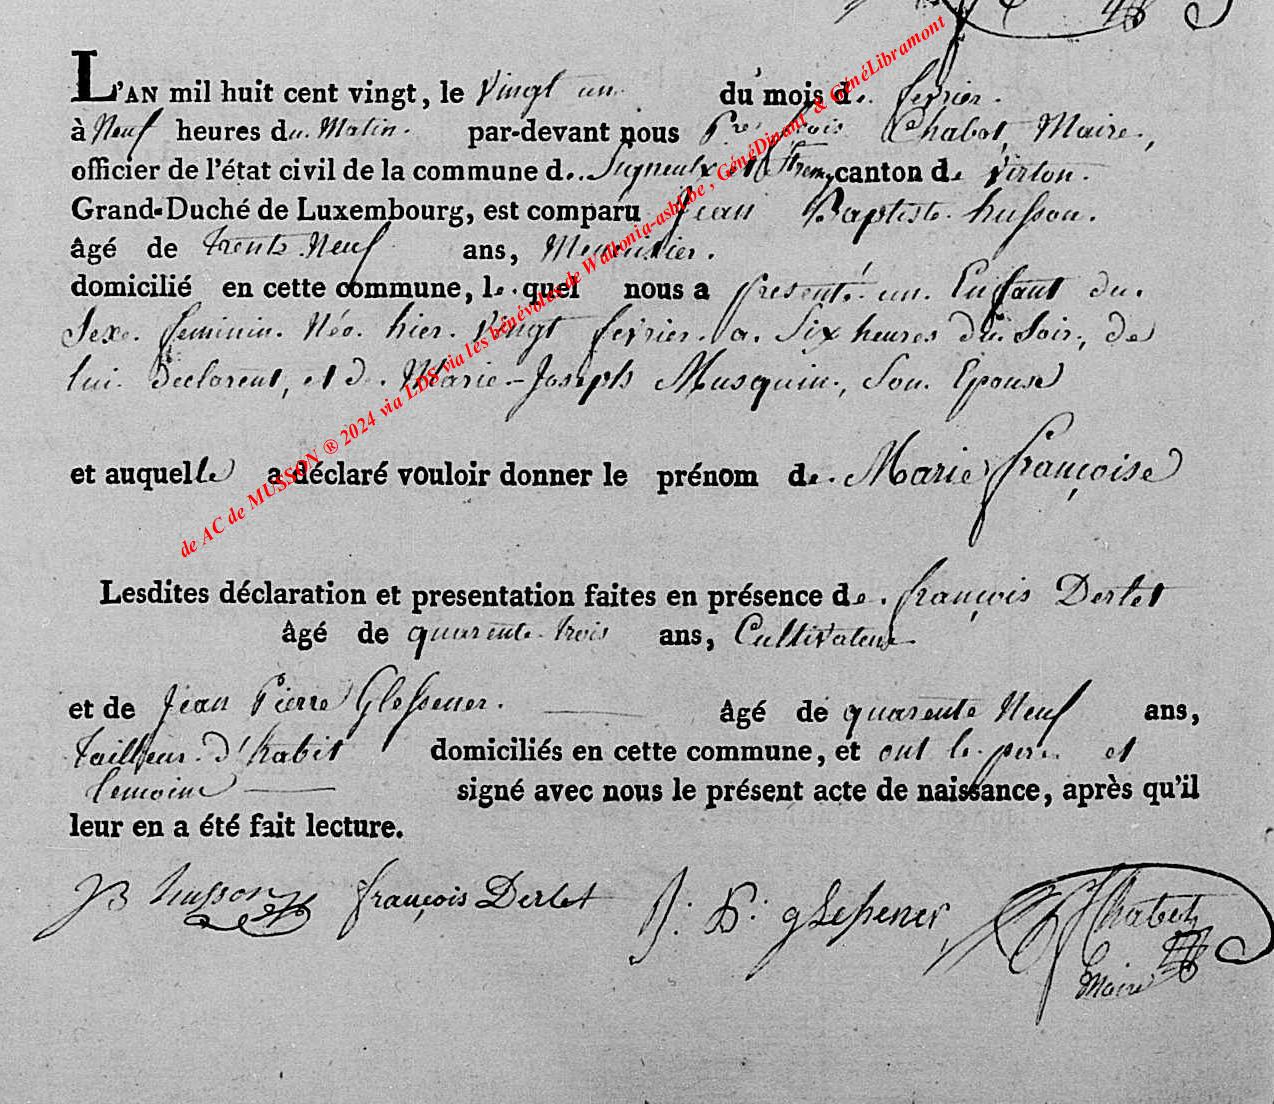 L'AN mil huit cent vingt, le Vingt un du mois de fevrier.
à Neuf heures du Matin. par-devant nous Chabot, Maire,
officier de l'état civil de la commune de Signeulx et canton de Virton.
Grand-Duché de Luxembourg, est comparu Jean Baptiste husson.
âgé de trente Neuf ans, Menuisier.
domicilié en cette commune, lequel nous a presenté un Enfant du
Sexe feminin. Née hier Vingt fevrier a Six heures du Soir, de
lui Declarent, et de Marie-Joseph Musquin, Son Epouse
et auquelle a déclaré vouloir donner le prénom de Marie françoise
Lesdites déclaration et presentation faites en présence de françois Dertet
âgé de quarente trois ans, Cultivateur
et de Jean Pierre Glessener. âgé de quarente Neuf ans,
tailleur d'habit domiciliés en cette commune, et ont le pere et
temoins signé avec nous le présent acte de naissance, après qu'il
leur en a été fait lecture.
JB husson françois Dertet J: P: glessener Chabot
Maire
de AC de MUSSON ® 2024 via LDS via les bénévoles de Wallonia-asbl.be, GénéDinant & GénéLibramont